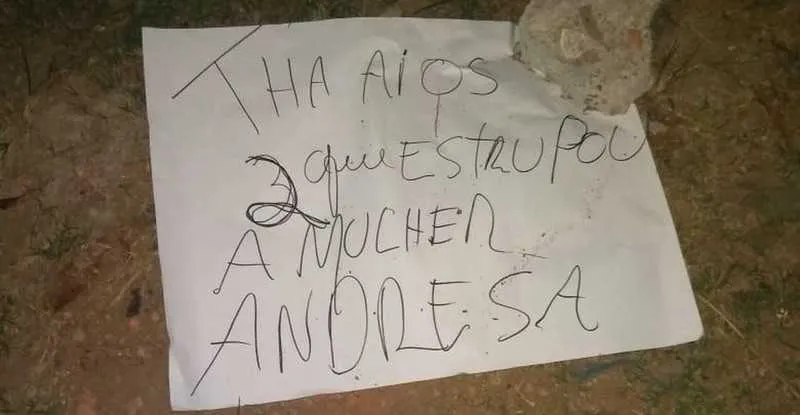 THA AIOS
2 que ESTRUPOU
A MUCHER
ANDRESA